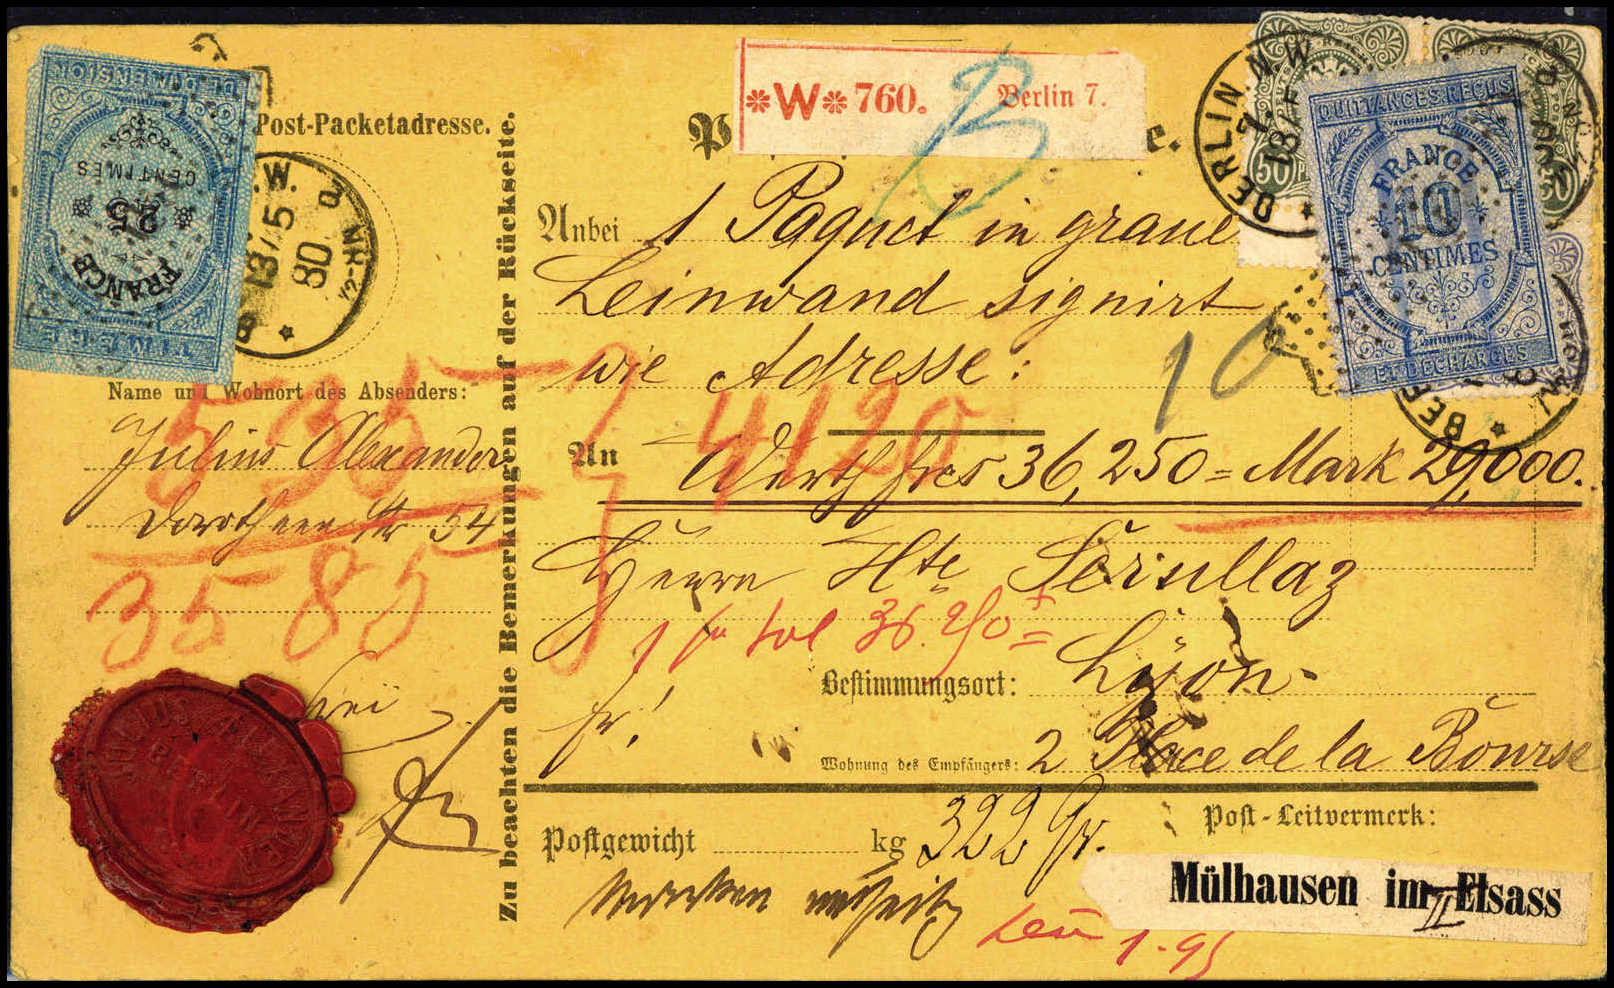 TIMBRE
DE DIMENSION
FRANCE
25
CENTIMES
Post-Packetadresse.
N.W.
13/5
80
12-1N
Name und Wohnort des Absenders:
Julius Alexander
Dorotheen Str 54
535
3585
frei
JULIUS ALEXANDER
BERLIN
Zu beachten die Bemerkungen auf der Rückseite.
*W* 760. Berlin 7.
B
Anbei 1 Paquet in graue
Leinwand signirt
wie Adresse:
10
4120
An Werth frcs 36,250 = Mark 29,000.
Herrn Hte Sérullaz
36.250
Bestimmungsort: Lyon.
fr!
Wohnung des Empfängers: 2 Place de la Bourse
Postgewicht kg 322 Gr.
Post-Leitvermerk:
Mülhausen im Elsass
II
1.95
BERLIN. N.W.
7.
13/5
50
50
QUITTANCES, REÇUS
FRANCE
10
CENTIMES
ET DÉCHARGES